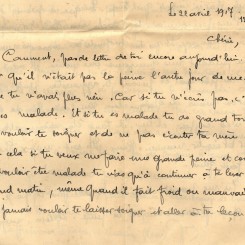 Le 21 avril 1917
Chérie,
Comment, pas de lettre de toi encore aujourd'hui.
qu'il n'était pas la peine l'autre jour de me
tu n'avais rien. Car si tu n'écris pas, c'
es malade. Et si tu es malade tu as grand tort
vouloir te soigner et de ne pas écouter ta mère
cela si tu veux me faire une grande peine et con
vouloir être malade tu n'as qu'à continuer à te lever
and matin, même quand il fait froid ou mauvais
jamais vouloir te laisser soigner et aller à ta leçon